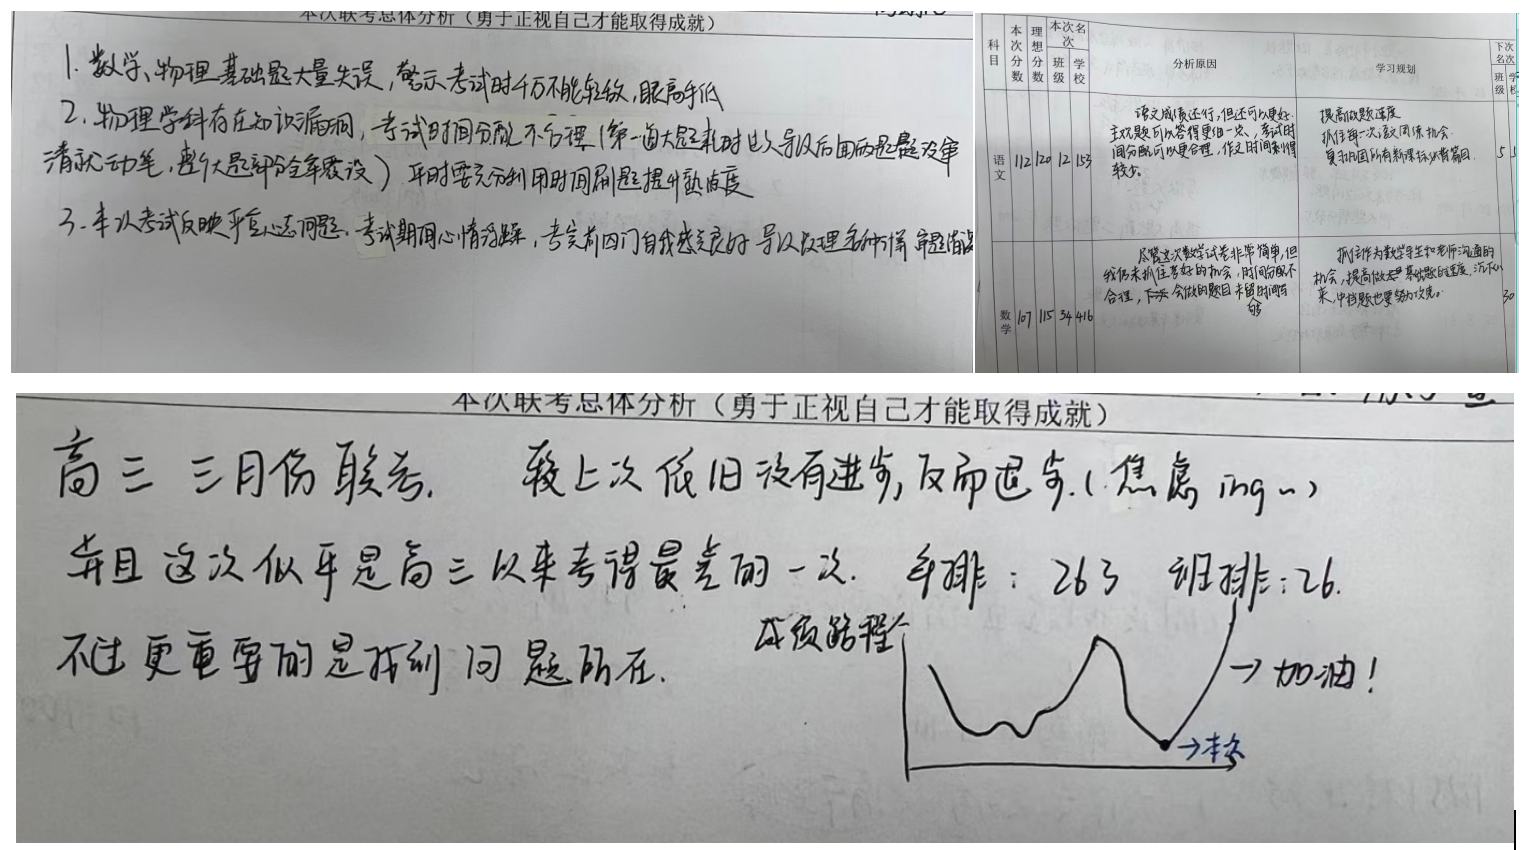 本次联考总体分析（勇于正视自己才能取得成就）
1. 数学、物理基础题大量失误，警示考试时千万不能轻敌，眼高手低
2. 物理学科存在知识漏洞，考试时间分配不合理（第一道大题耗时过久导致后面两题题没审
清就动笔，整个大题部分全军覆没）平时要充分利用时间刷题提升熟练度
3. 本次考试反映平宜心态问题，考试期间心情浮躁，考完前四门自我感觉良好导致理
科目
本次分数
理想分数
本次名次
班级
学校
分析原因
学习规划
下次名次
班级
学校
语文
112
120
12
153
语文成绩还行，但还可以更好
主观题可以答得更细一点、考试时
间分配可以更合理，作文时间剩得
较少。
提高做题速度
抓住每一次读
复习巩固所有新课标必背篇目．
5
数学
107
115
34
416
尽管这次数学试卷非常简单，但
我仍未抓住考好的机会，时间分配不
合理，会做的题目未留时间去
抓住作为数学学生和老师沟通的
机会，提高做基础题的速度，沉下心
来，中档题也要努力攻克。
30
本次联考总体分析（勇于正视自己才能取得成就）
高三 三月份联考． 较上次依旧没有进步，反而退步．（焦虑 ing ~）
并且这次似乎是高三以来考得最差的一次． 年排：263 班排：26．
不过更重要的是找到问题所在．
成绩路程
→加油！
→本次